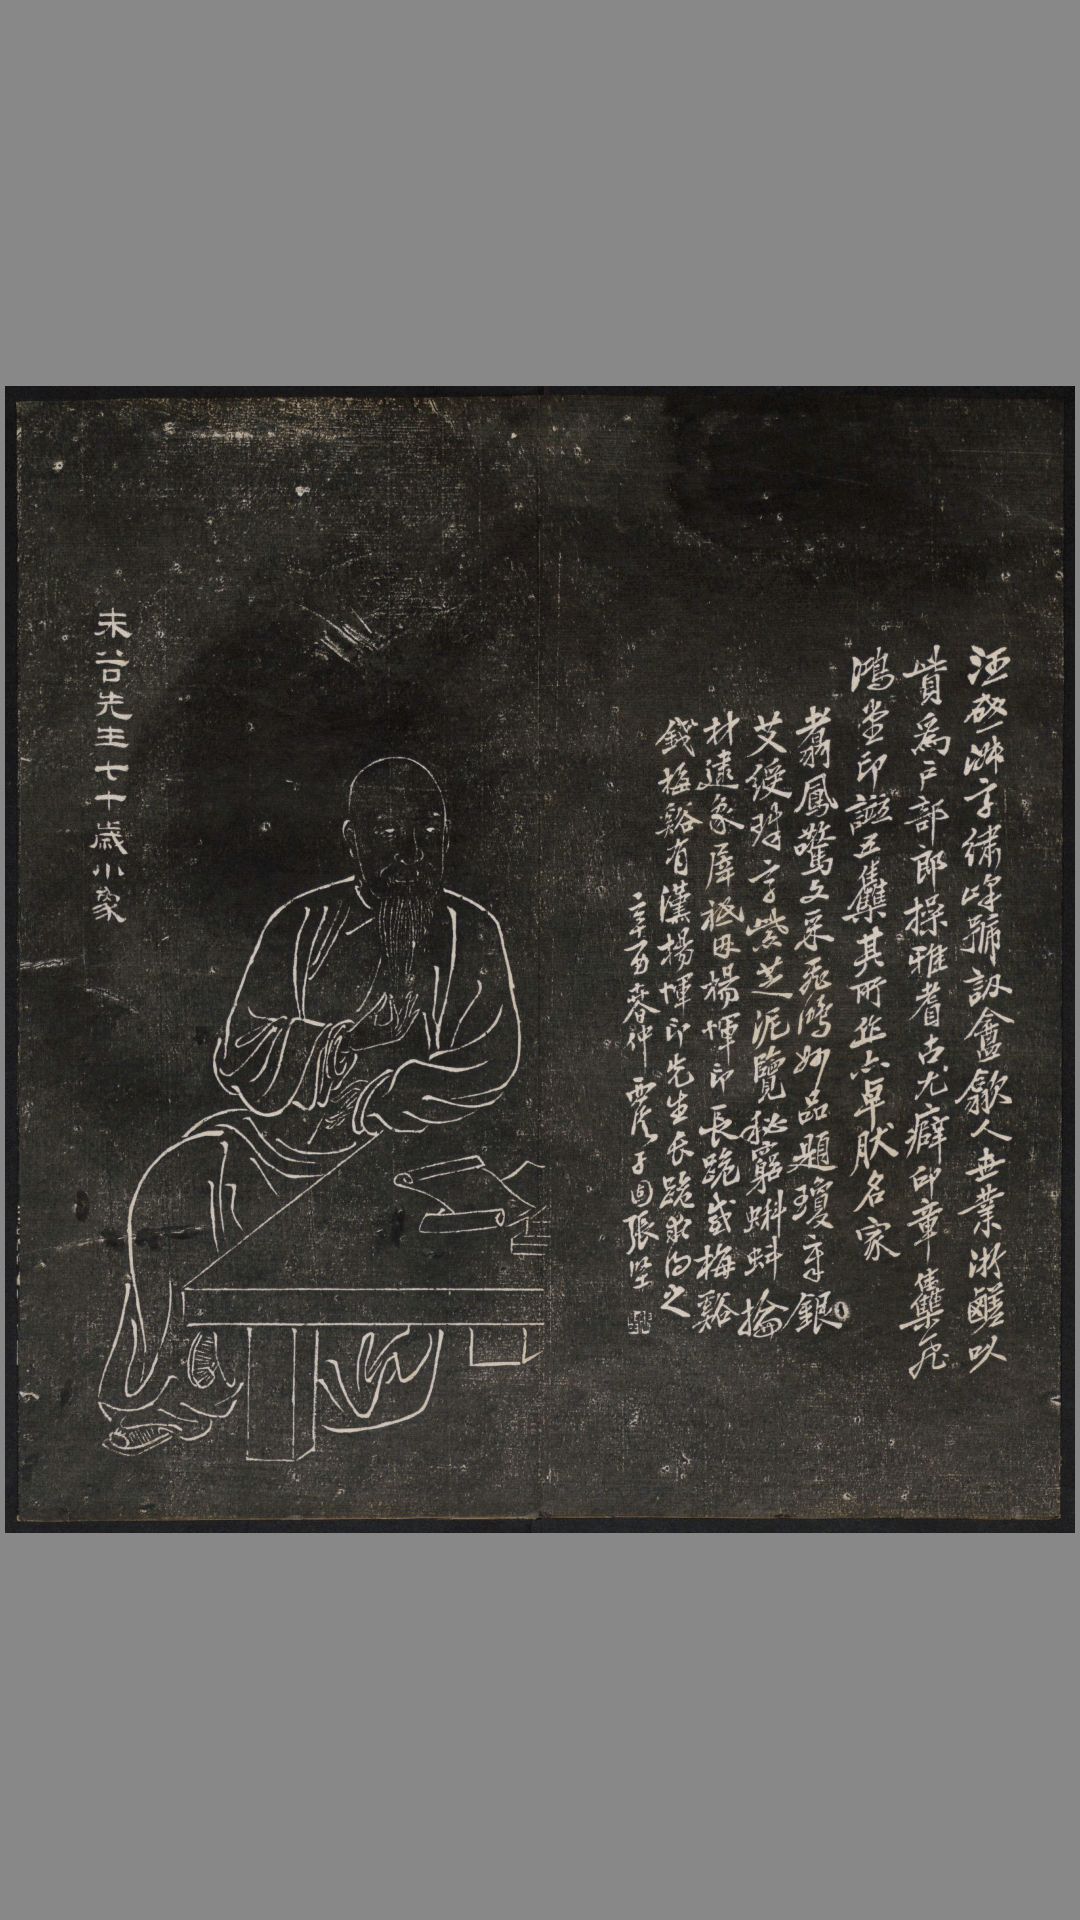 汪啟淑字綉峰號訒盦歙人世業淅鹺以
貲爲戶部郎操雅耆古尤癖印章集飛
鴻堂印譜五集其所作亦卓肰名家
翥鳳驚文采飛鴻妙品題瓊章銀
艾綬珥字紫芝泥覽秘窮蝌蚪掄
材逮象犀祗因楊惲印長跪感梅谿
錢梅谿有漢楊惲印先生長跪求得之
辛酉春仲 西陵子固張堅
未谷先生七十歲小象